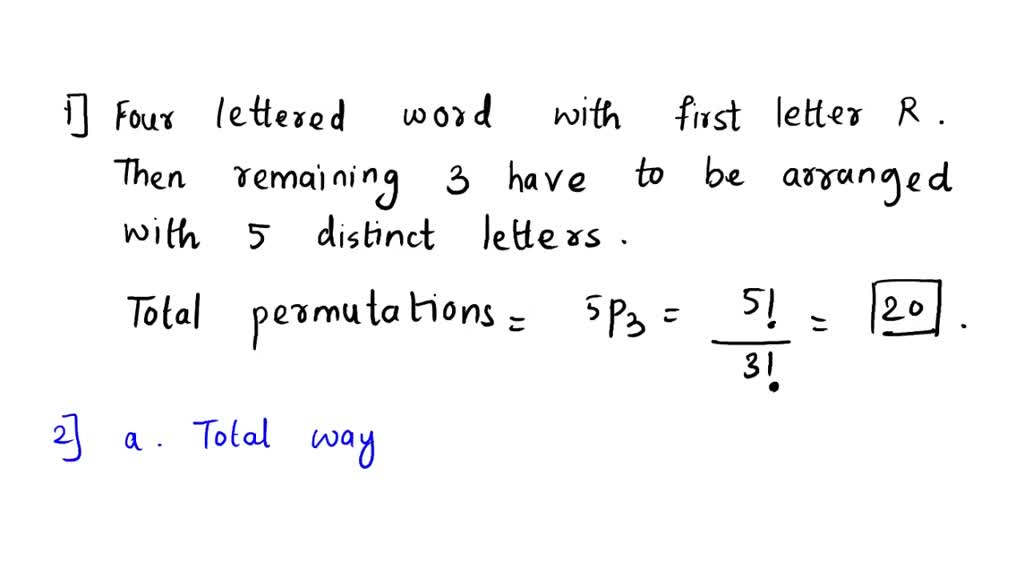 1] Four lettered word with first letter R.
Then remaining 3 have to be arranged
with 5 distinct letters.
Total permutations = 5P3 = 5!/3! = 20.
2] a. Total way